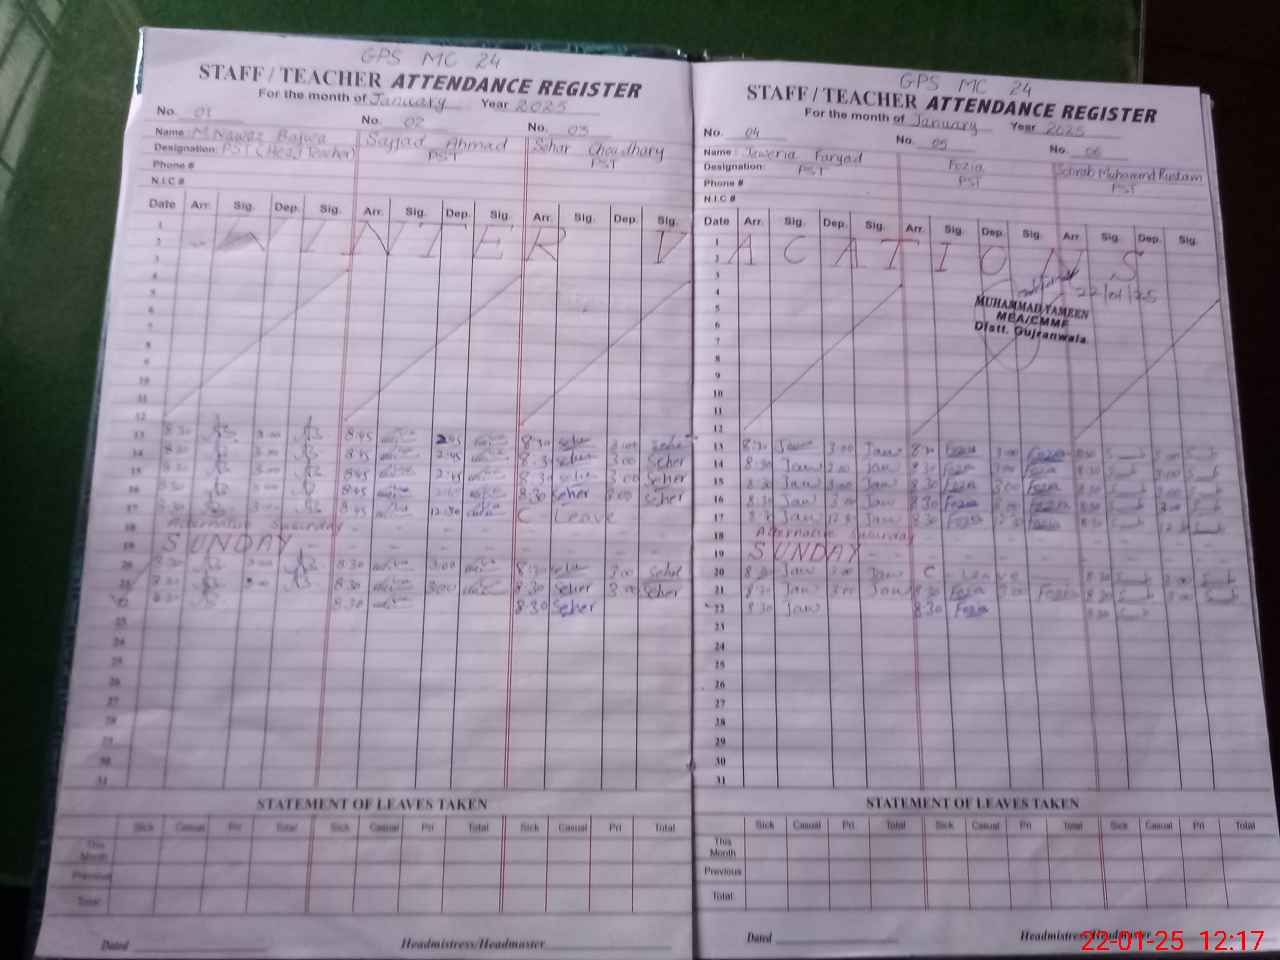 GPS MC 24
STAFF / TEACHER ATTENDANCE REGISTER
For the month of January Year 2025
No. 01 No. 02 No. 03
Name: M. Nawaz Bajwa Sajjad Ahmad Sehar Choudhary
Designation: PST (Head Teacher) PST PST
Phone #
N.I.C #
Date Arr. Sig. Dep. Sig. Arr. Sig. Dep. Sig. Arr. Sig. Dep. Sig.
1
2 WINTER V
3
4
5
6
7
8
9
10
11
12
13 8:30 3:00 8:45 2:45 8:30 Seher 3:00 Seher
14 8:30 3:00 8:45 2:45 8:30 Seher 3:00 Seher
15 8:30 3:00 8:45 2:45 8:30 Seher 3:00 Seher
16 8:30 3:00 8:45 8:30 Seher 3:00 Seher
17 8:30 8:45 12:30 C - Leave
18 Alternative Saturday
19 SUNDAY
20 8:30 3:00 8:30 3:00 8:30 Seher 3:00 Seher
21 8:30 3:00 8:30 3:00 8:30 Seher 3:00 Seher
22 8:30 8:30 8:30 Seher
23
24
25
26
27
28
29
30
31
STATEMENT OF LEAVES TAKEN
Sick Casual Pri Total Sick Casual Pri Total Sick Casual Pri Total
This Month
Previous
Total
Dated Headmistress/Headmaster
GPS MC 24
STAFF / TEACHER ATTENDANCE REGISTER
For the month of January Year 2025
No. 04 No. 05 No. 06
Name: Jaweria Faryad Fozia Sohrab Muhammad Rustam
Designation: PST PST PST
Phone #
N.I.C #
Date Arr. Sig. Dep. Sig. Arr. Sig. Dep. Sig. Arr. Sig. Dep. Sig.
1
2 ACATIONS
3
4 22/01/25
MUHAMMAD YAMEEN
5
MEA/CMMF
6
Distt. Gujranwala.
7
8
9
10
11
12
13 8:30 Jaw 3:00 Jaw 8:30 Fozia 3:00 Fozia 8:30 3:00
14 8:30 Jaw 3:00 Jaw 8:30 Fozia 3:00 Fozia 8:30 3:00
15 8:30 Jaw 3:00 Jaw 8:30 Fozia 3:00 Fozia 8:30 3:00
16 8:30 Jaw 3:00 Jaw 8:30 Fozia 3:00 Fozia 8:30 3:00
17 8:30 Jaw 12:30 Jaw 8:30 Fozia 12:30 Fozia 8:30 12:30
18 Alternative Saturday
19 SUNDAY
20 8:30 Jaw 3:00 Jaw C - Leave 8:30 3:00
21 8:30 Jaw 3:00 Jaw 8:30 Fozia 3:00 Fozia 8:30 3:00
22 8:30 Jaw 8:30 Fozia 8:30
23
24
25
26
27
28
29
30
31
STATEMENT OF LEAVES TAKEN
Sick Casual Pri Total Sick Casual Pri Total Sick Casual Pri Total
This Month
Previous
Total
Dated Headmistress/Headmaster
22-01-25 12:17